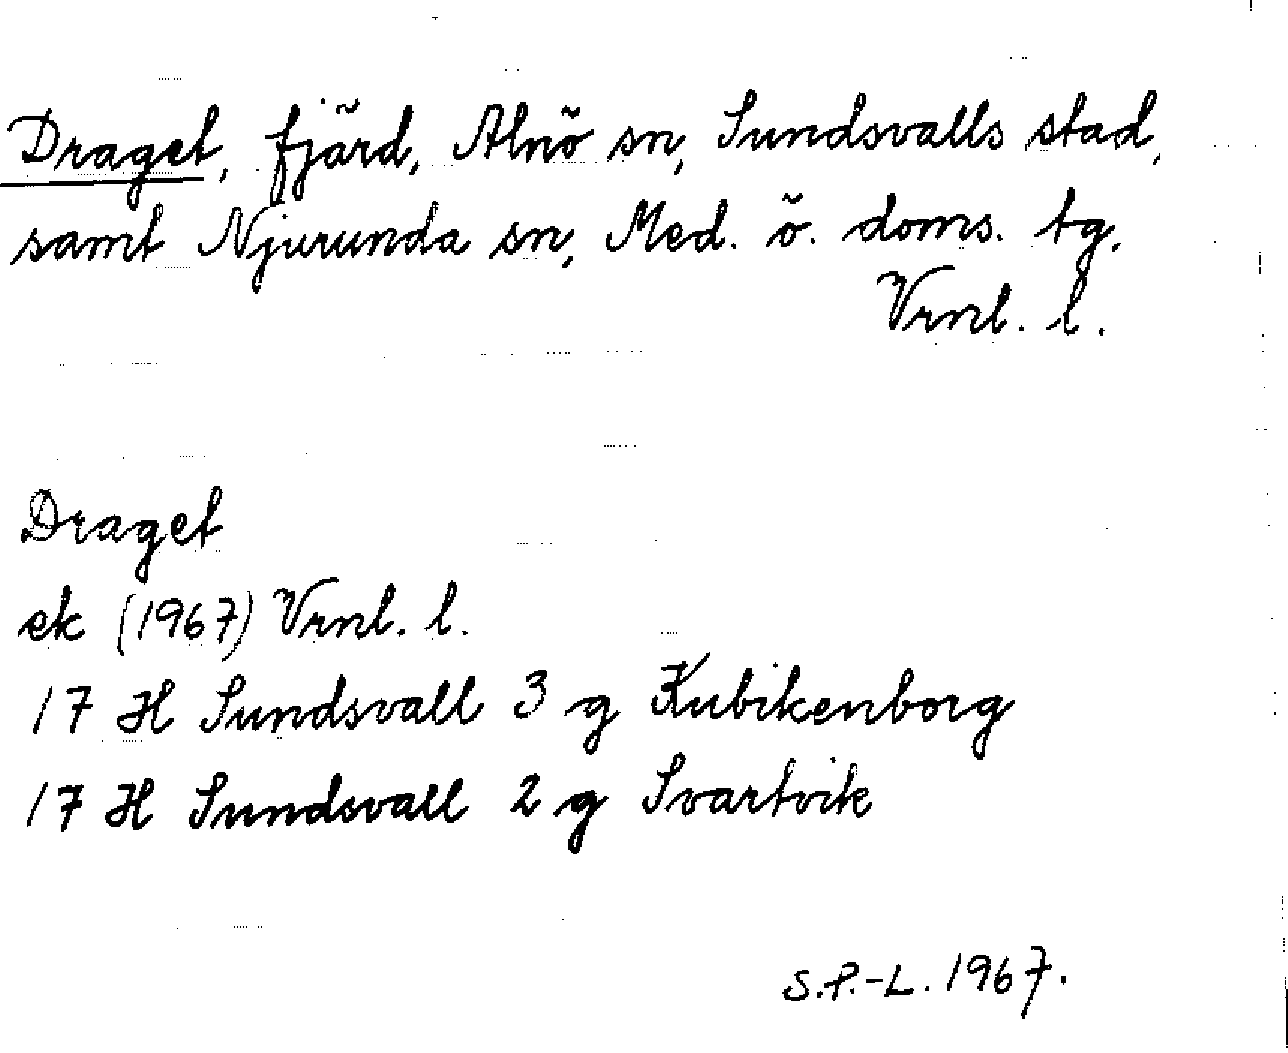 Draget, fjärd, Alnö sn, Sundsvalls stad,
samt Njurunda sn, Med. ö. doms. tg.
Vrnl. l.
Draget
ek (1967) Vrnl. l.
17 H Sundsvall 3 g Kubikenborg
17 H Sundsvall 2 g Svartvik
S.P.-L. 1967.